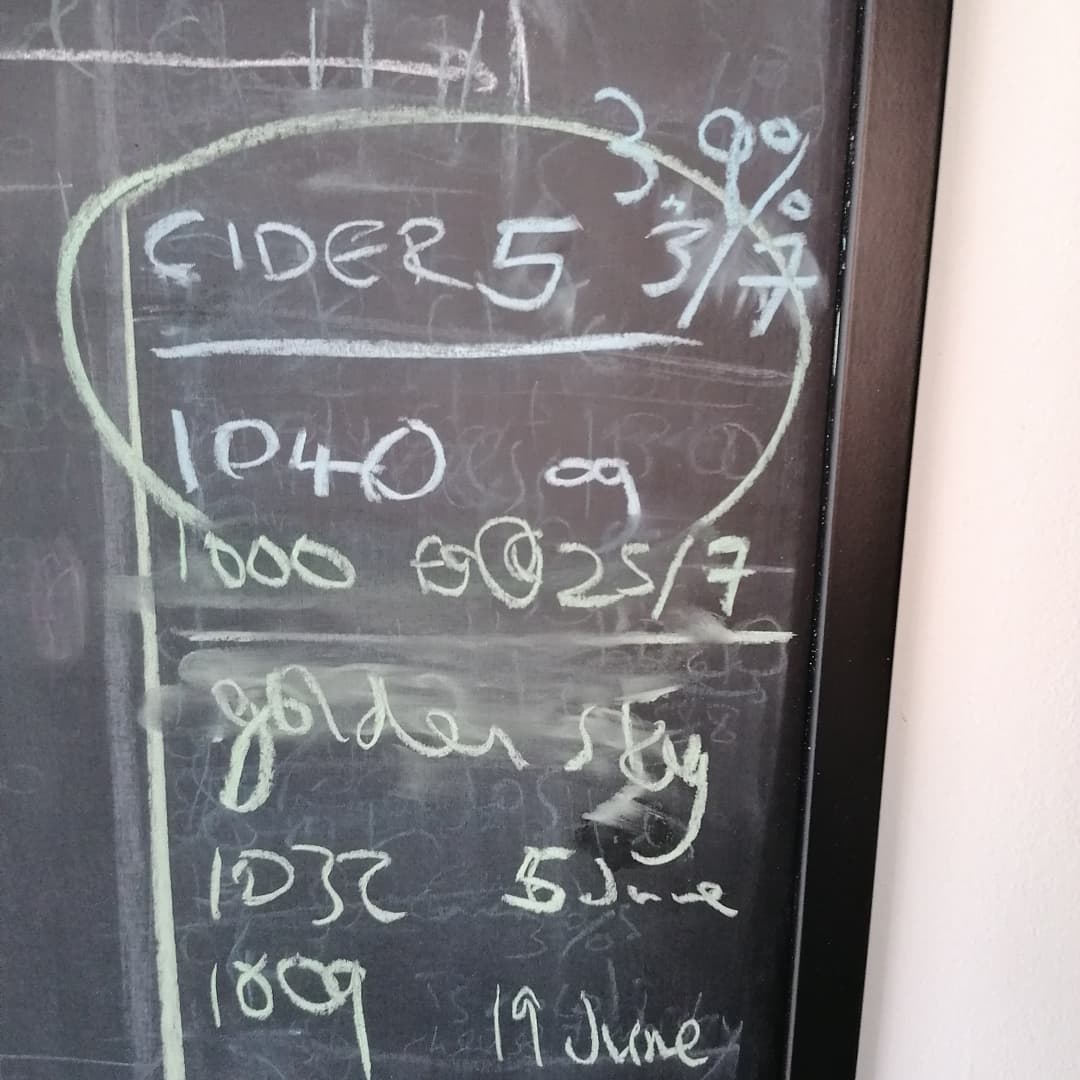 3.9%
CIDER 5 3/7
1040 og
1000 @ 25/7
golden sky
1032 5 June
1009 19 June